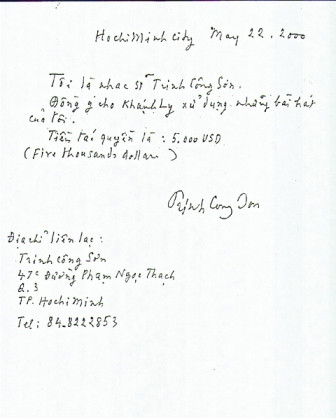 HochiMinh city May 22.2000
Tôi là nhạc sĩ Trịnh Công Sơn.
Đồng ý cho Khánh Ly xử dụng những bài hát
của tôi.
Tiền tác quyền là : 5.000 USD
(Five thousands dollars)
Trịnh Cong Son
Địa chỉ liên lạc :
Trịnh Công Sơn
47c Đường Phạm Ngọc Thạch
Q.3
TP. HochiMinh
Tel: 84.8222853